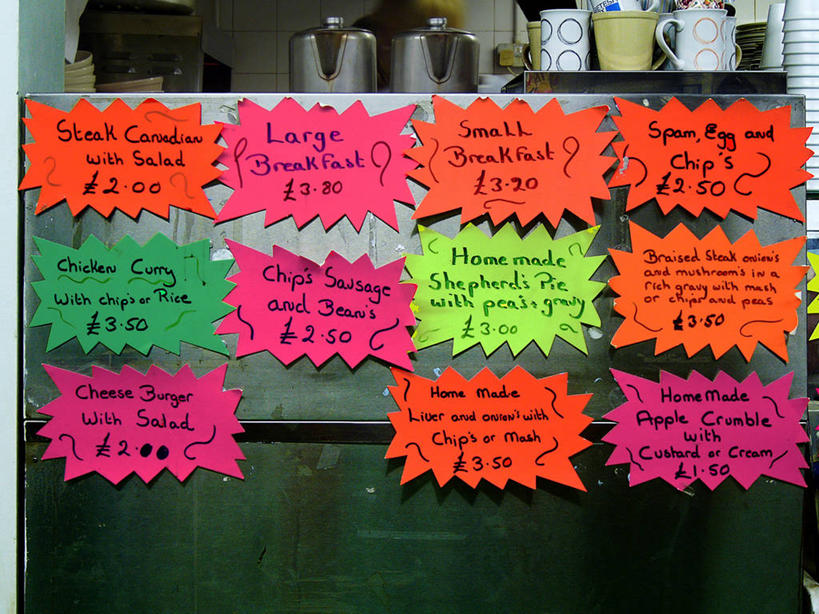 Steak Canadian
with Salad
£2.00
Large
Breakfast
£3.80
Small
Breakfast
£3.20
Spam, Egg and
Chip's
£2.50
Chicken Curry
With chip's or Rice
£3.50
Chip's Sausage
and Bean's
£2.50
Home made
Shepherd's Pie
with pea's + gravy
£3.00
Braised Steak onion's
and mushroom's in a
rich gravy with mash
or chips and peas
£3.50
Cheese Burger
With Salad
£2.00
Home Made
Liver and onion's with
Chip's or Mash
£3.50
Home Made
Apple Crumble
with
Custard or Cream
£1.50